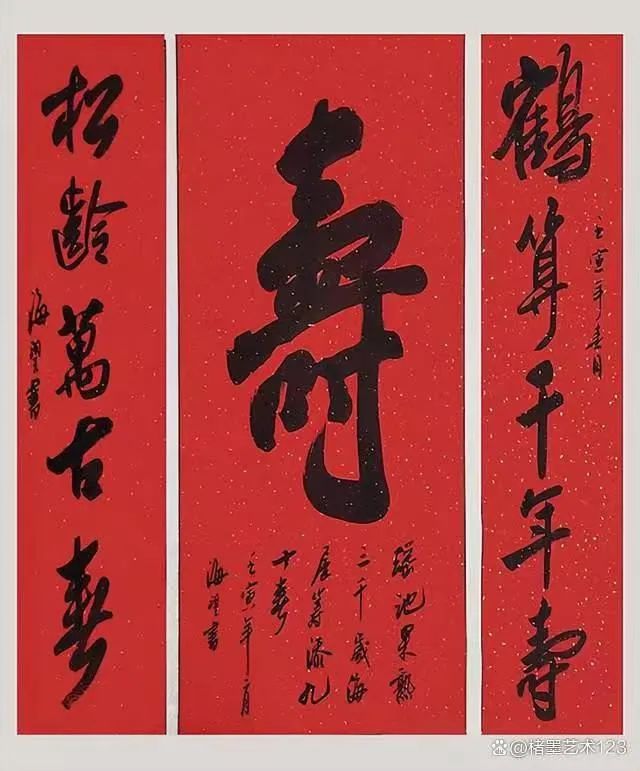 鶴算千年寿
壬寅年春月
壽
瑶池果熟
三千歲海
屋籌添九
十春
壬寅年二月
海望書
松齡萬古春
海望書
楮墨艺术123